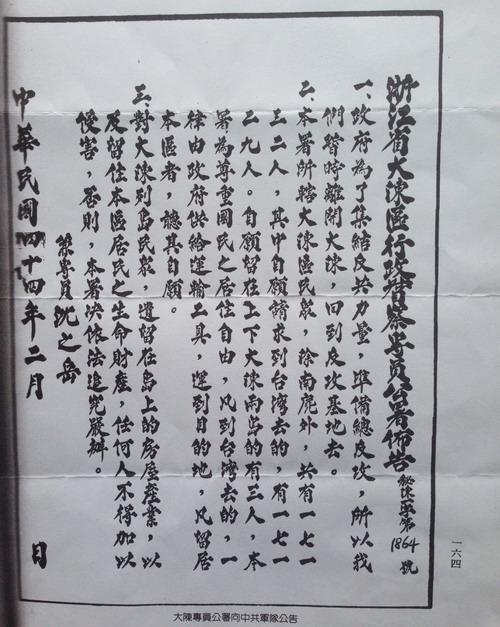 浙江省大陳區行政督察專員公署佈告 秘陳字第1864號
一、政府為了集結反共力量，準備總反攻，所以我
們暫時離開大陳，回到反攻基地去。
二、本署所轄大陳區民眾，除南麂外，共有一七一
三二人，其中自願請求到台灣去的，有一七一
二九人。自願留在上下大陳兩島的有三人，本
署為尊重國民之居住自由，凡到台灣去的，一
律由政府供給運輸工具，運到目的地，凡留居
本區者，聽其自願。
三、對大陳列島民眾，遺留在島上的房屋產業，以
及留住本區居民之生命財產，任何人不得加以
侵害，否則，本署決依法追究嚴辦。
專員沈之岳
中華民國四十四年二月 日
一六四
大陳專員公署向中共軍隊公告